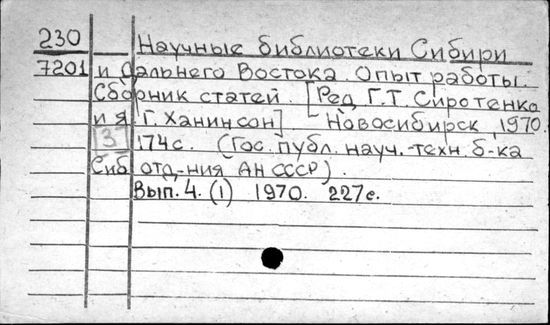 230 Научные библиотеки Сибири
7201 и Дальнего Востока. Опыт работы.
Сборник статей. [Ред. Г.Т. Сиротенко
и Я.Г. Ханинсон] Новосибирск, 1970.
13 174с. (Гос. публ. науч.-техн. б-ка
Сиб. отд-ния АН СССР).
Вып. 4. (1) 1970. 227с.